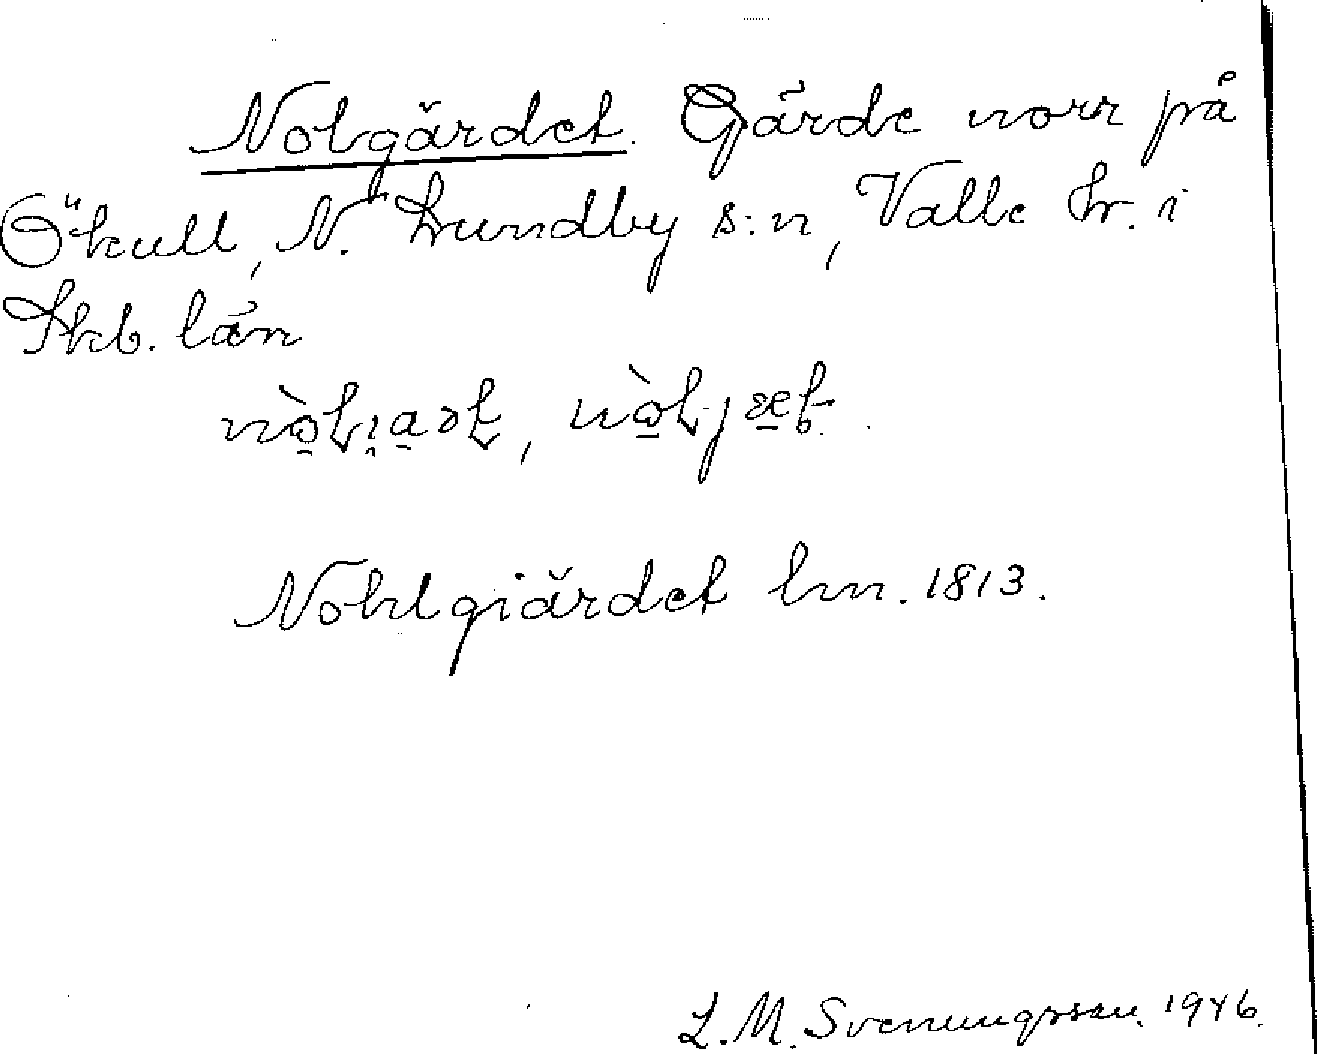 Nolgärdet. Gärde norr på
Ökull, N. Lundby s:n, Valle hr. i
Skb. län
Nohlgiärdet lm. 1813.
L. M. Svenungsson. 1946.